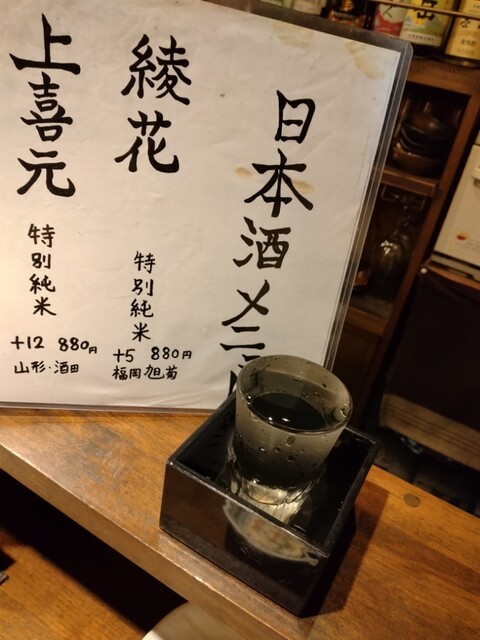 日本酒メニュー
綾花
特別純米
+5 880円
福岡・旭菊
上喜元
特別純米
+12 880円
山形・酒田